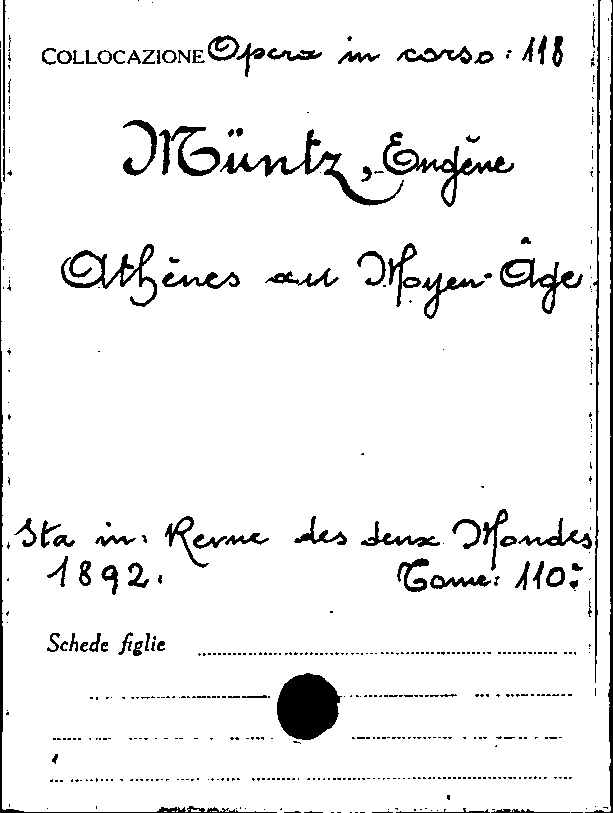 COLLOCAZIONE Opera in corso: 118
Müntz, Eugène
Athènes au Moyen-Âge
Sta in: Revue des deux Mondes
1892. Tome: 110:
Schede figlie